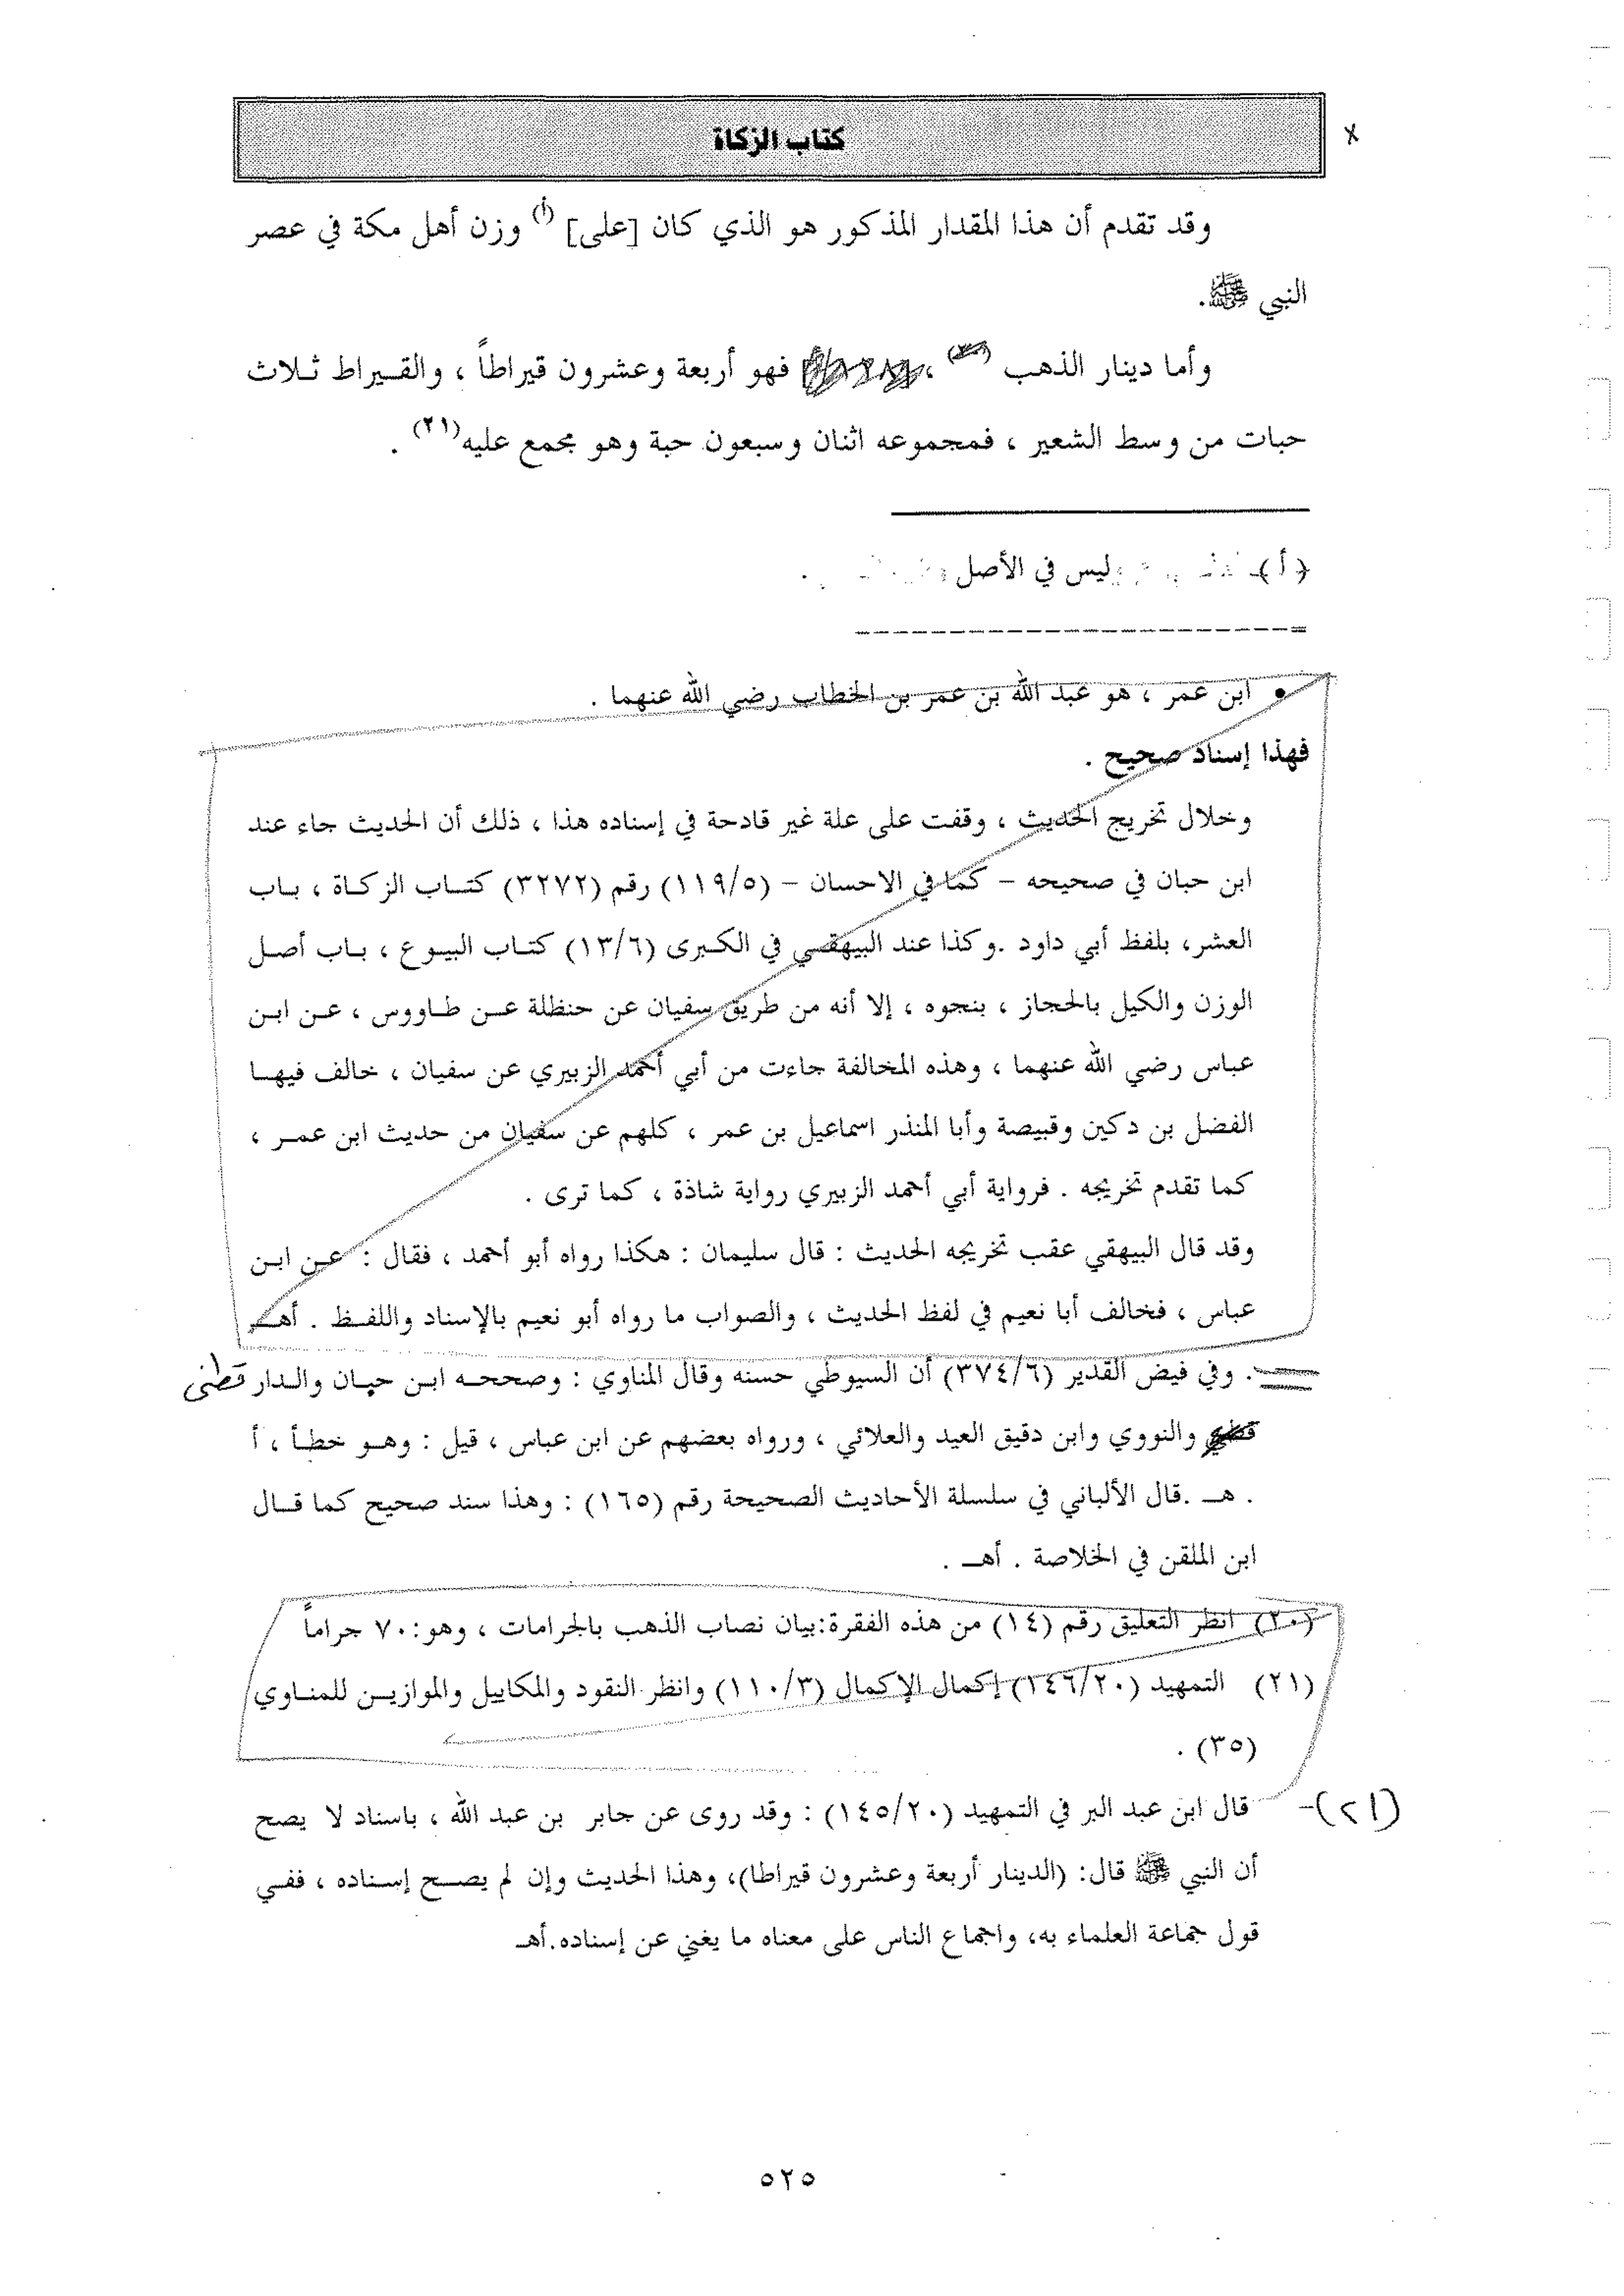 كتاب الزكاة
وقد تقدم أن هذا المقدار المذكور هو الذي كان [على] (أ) وزن أهل مكة في عصر
النبي ﷺ.
وأما دينار الذهب ، فهو أربعة وعشرون قيراطاً ، والقيراط ثلاث
حبات من وسط الشعير ، فمجموعه اثنان وسبعون حبة وهو مجمع عليه(٢١) .
(أ) ليس في الأصل .
=
• ابن عمر ، هو عبد الله بن عمر بن الخطاب رضي الله عنهما .
فهذا إسناد صحيح .
وخلال تخريج الحديث ، وقفت على علة غير قادحة في إسناده هذا ، ذلك أن الحديث جاء عند
ابن حبان في صحيحه – كما في الاحسان – (١١٩/٥) رقم (٣٢٧٢) كتاب الزكاة ، باب
العشر، بلفظ أبي داود .وكذا عند البيهقي في الكبرى (١٣/٦) كتاب البيوع ، باب أصل
الوزن والكيل بالحجاز ، بنحوه ، إلا أنه من طريق سفيان عن حنظلة عن طاووس ، عن ابن
عباس رضي الله عنهما ، وهذه المخالفة جاءت من أبي أحمد الزبيري عن سفيان ، خالف فيها
الفضل بن دكين وقبيصة وأبا المنذر اسماعيل بن عمر ، كلهم عن سفيان من حديث ابن عمر ،
كما تقدم تخريجه . فرواية أبي أحمد الزبيري رواية شاذة ، كما ترى .
وقد قال البيهقي عقب تخريجه الحديث : قال سليمان : هكذا رواه أبو أحمد ، فقال : عن ابن
عباس ، فخالف أبا نعيم في لفظ الحديث ، والصواب ما رواه أبو نعيم بالإسناد واللفظ . أهـ
. وفي فيض القدير (٣٧٤/٦) أن السيوطي حسنه وقال المناوي : وصححه ابن حبان والدار قطني
قطني والنووي وابن دقيق العيد والعلائي ، ورواه بعضهم عن ابن عباس ، قيل : وهو خطأ ، أ
. هـ .قال الألباني في سلسلة الأحاديث الصحيحة رقم (١٦٥) : وهذا سند صحيح كما قال
ابن الملقن في الخلاصة . أهـ .
(٢٠) انظر التعليق رقم (١٤) من هذه الفقرة:بيان نصاب الذهب بالجرامات ، وهو:٧٠ جراماً
(٢١) التمهيد (١٤٦/٢٠) إكمال الإكمال (١١٠/٣) وانظر النقود والمكاييل والموازين للمناوي
(٣٥) .
(٢١)- قال ابن عبد البر في التمهيد (١٤٥/٢٠) : وقد روى عن جابر بن عبد الله ، باسناد لا يصح
أن النبي ﷺ قال: (الدينار أربعة وعشرون قيراطا)، وهذا الحديث وإن لم يصح إسناده ، ففي
قول جماعة العلماء به، واجماع الناس على معناه ما يغني عن إسناده.أهـ
٥٢٥